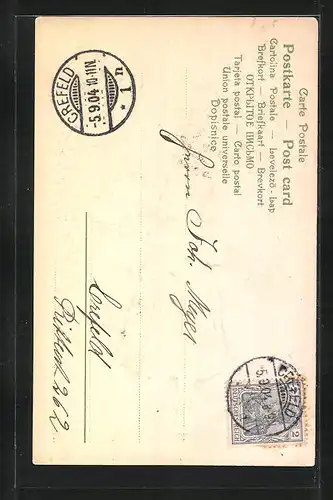 Carte Postale
Postkarte — Post card
Cartolina Postale — Levelező-Lap
Brefkort — Briefkaart — Brevkort
ОТКРЫТОЕ ПИСЬМО
Tarjeta postal — Carto postal
Union postale universelle
Dopisnice
CREFELD
-5.9.04.10-11N.
* 1 n
CREFELD
-5.9.04
2
Joh. Meyer
Crefeld
262